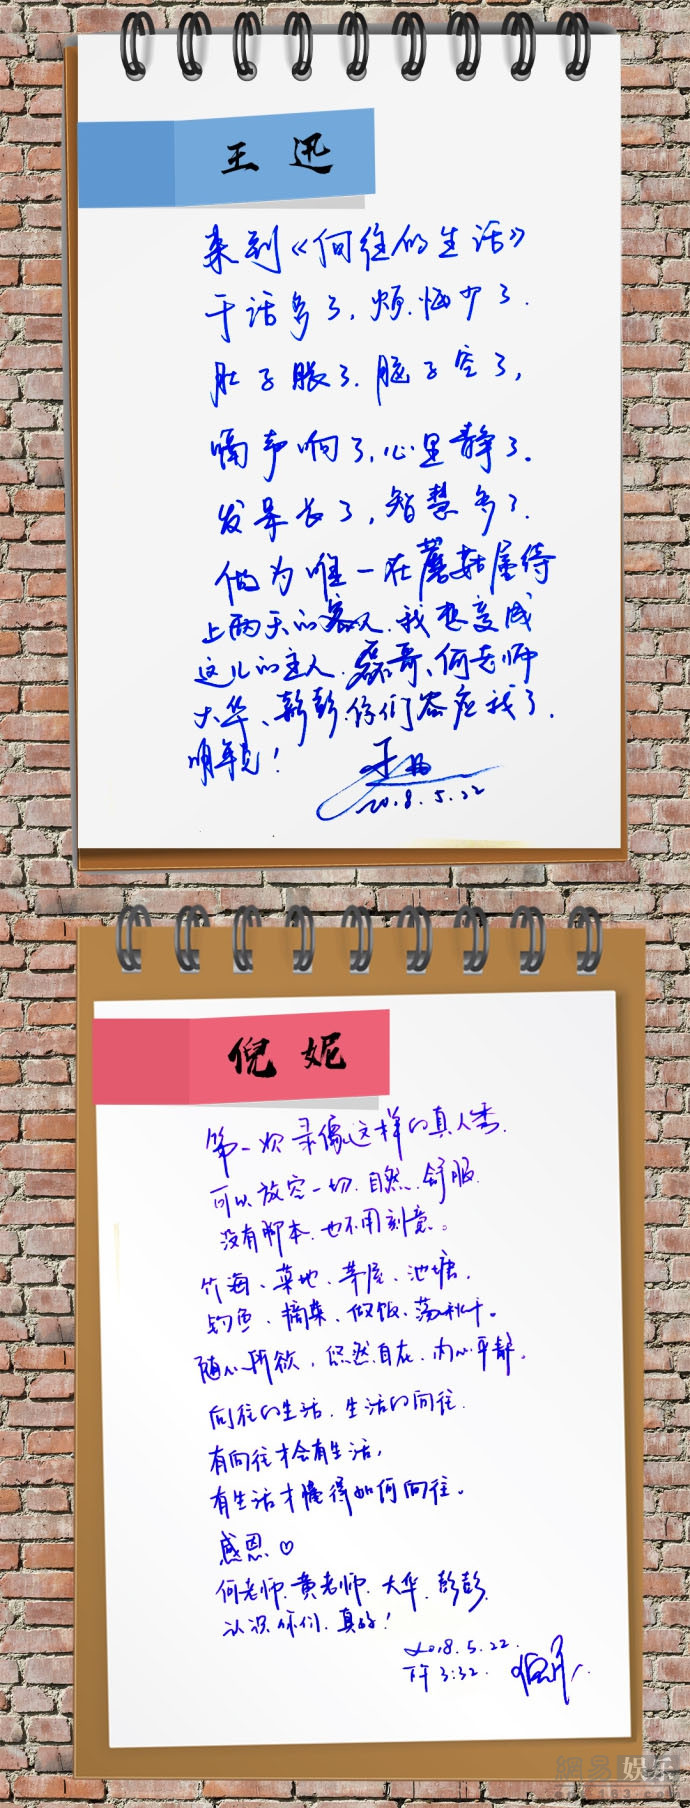 王迅
来到《向往的生活》
干话多了,烦恼少了.
肚子胀了.脑子空了,
嗝声响了,心里静了.
发呆长了,智慧多了.
做为唯一在蘑菇屋待
上两天的客人.我想变成
这儿的主人.磊哥、何老师
大华、彭彭.你们答应我了.
明年见!
王迅
2018.5.22
倪妮
第一次录像这样的真人秀.
可以放空一切.自然.舒服.
没有脚本.也不用刻意。
竹海、菜地、茅屋、池塘.
钓鱼、摘菜、做饭、荡秋千。
随心所欲,悠然自在.内心平静.
向往的生活.生活的向往.
有向往才会有生活,
有生活才懂得如何向往。
感恩♡
何老师.黄老师.大华.彭彭.
认识你们.真好!
2018.5.22.
下午3:32.
倪妮
網易娱乐
ent.163.com